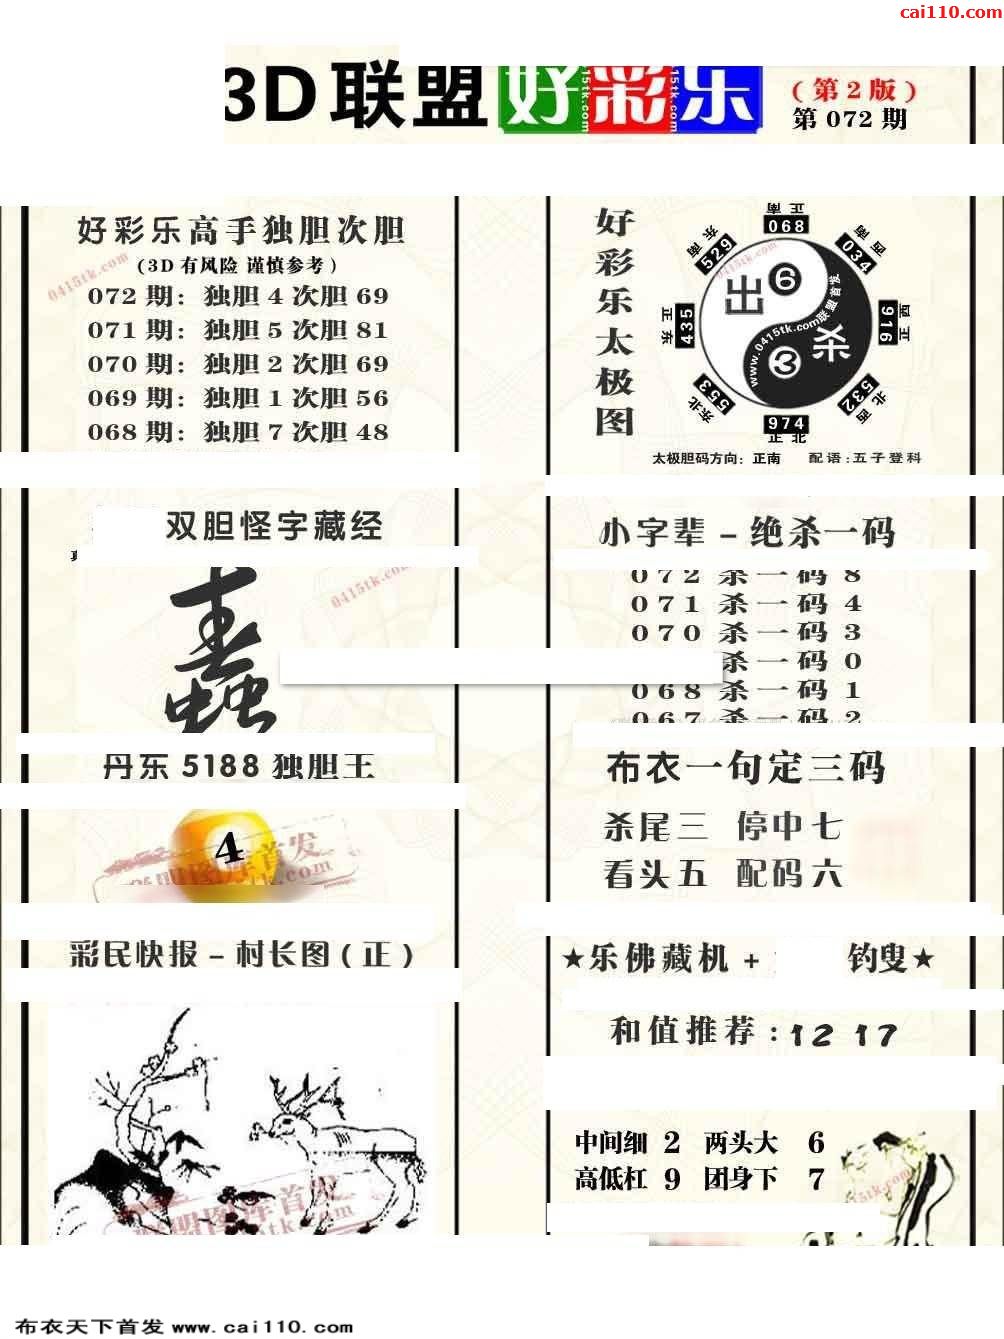 cai110.com
3D联盟 好彩乐
(第2版)
第072期
好彩乐高手独胆次胆
(3D有风险 谨慎参考)
072期: 独胆4次胆69
071期: 独胆5次胆81
070期: 独胆2次胆69
069期: 独胆1次胆56
068期: 独胆7次胆48
0415tk.com
好彩乐太极图
正南
068
东南
529
西南
034
正东
435
西正
916
东北
553
北西
532
974
正北
出 6
杀 3
www.0415tk.com联盟首发
太极胆码方向: 正南 配语:五子登科
双胆怪字藏经
0415tk.com
小字辈-绝杀一码
072 杀一码 8
071 杀一码 4
070 杀一码 3
杀一码 0
068 杀一码 1
067 杀一码 2
丹东5188独胆王
4
联盟图库首发
布衣一句定三码
杀尾三 停中七
看头五 配码六
彩民快报-村长图(正)
联盟图库首发
★乐佛藏机+
钓叟★
和值推荐:12 17
中间细 2 两头大 6
高低杠 9 团身下 7
布衣天下首发 www.cai110.com